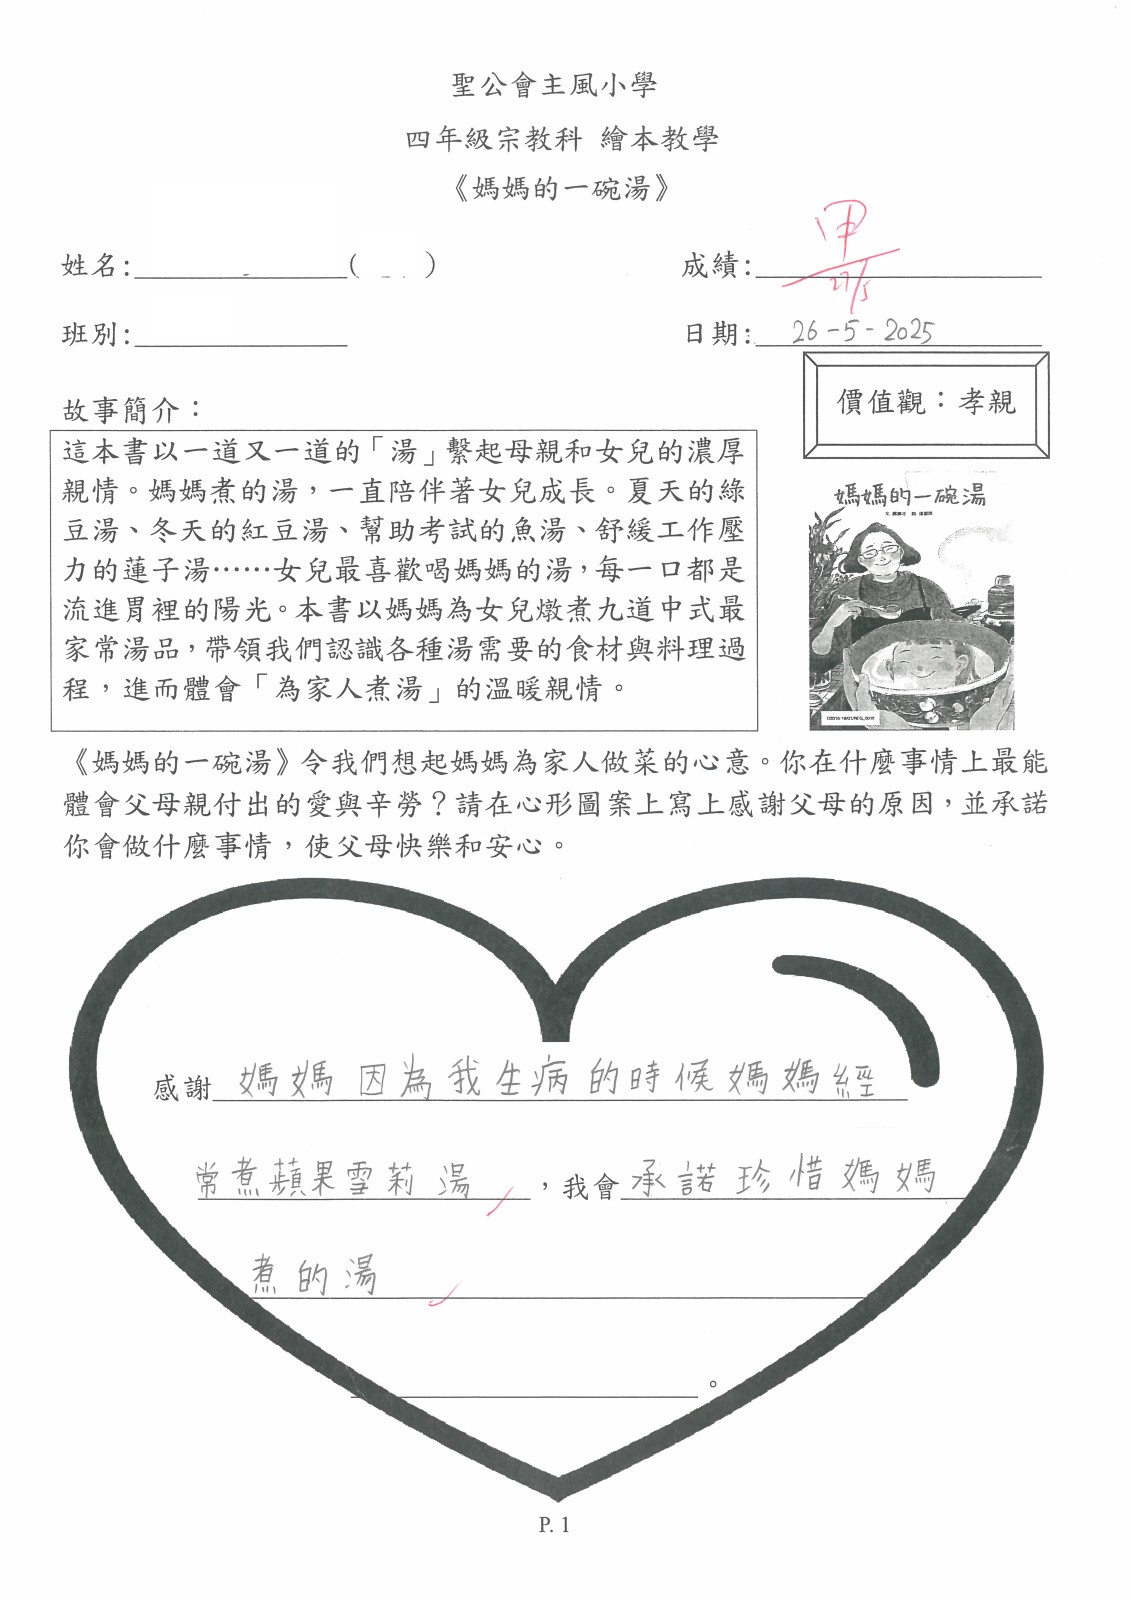 聖公會主風小學
四年級宗教科 繪本教學
《媽媽的一碗湯》
姓名:( )
成績:甲
27/5
班別:
日期: 26-5-2025
價值觀：孝親
故事簡介：
這本書以一道又一道的「湯」繫起母親和女兒的濃厚
親情。媽媽煮的湯，一直陪伴著女兒成長。夏天的綠
豆湯、冬天的紅豆湯、幫助考試的魚湯、舒緩工作壓
力的蓮子湯……女兒最喜歡喝媽媽的湯，每一口都是
流進胃裡的陽光。本書以媽媽為女兒燉煮九道中式最
家常湯品，帶領我們認識各種湯需要的食材與料理過
程，進而體會「為家人煮湯」的溫暖親情。
媽媽的一碗湯
《媽媽的一碗湯》令我們想起媽媽為家人做菜的心意。你在什麼事情上最能
體會父母親付出的愛與辛勞？請在心形圖案上寫上感謝父母的原因，並承諾
你會做什麼事情，使父母快樂和安心。
感謝媽媽因為我生病的時候媽媽經
常煮蘋果雪莉湯，我會承諾珍惜媽媽
煮的湯
。
P. 1